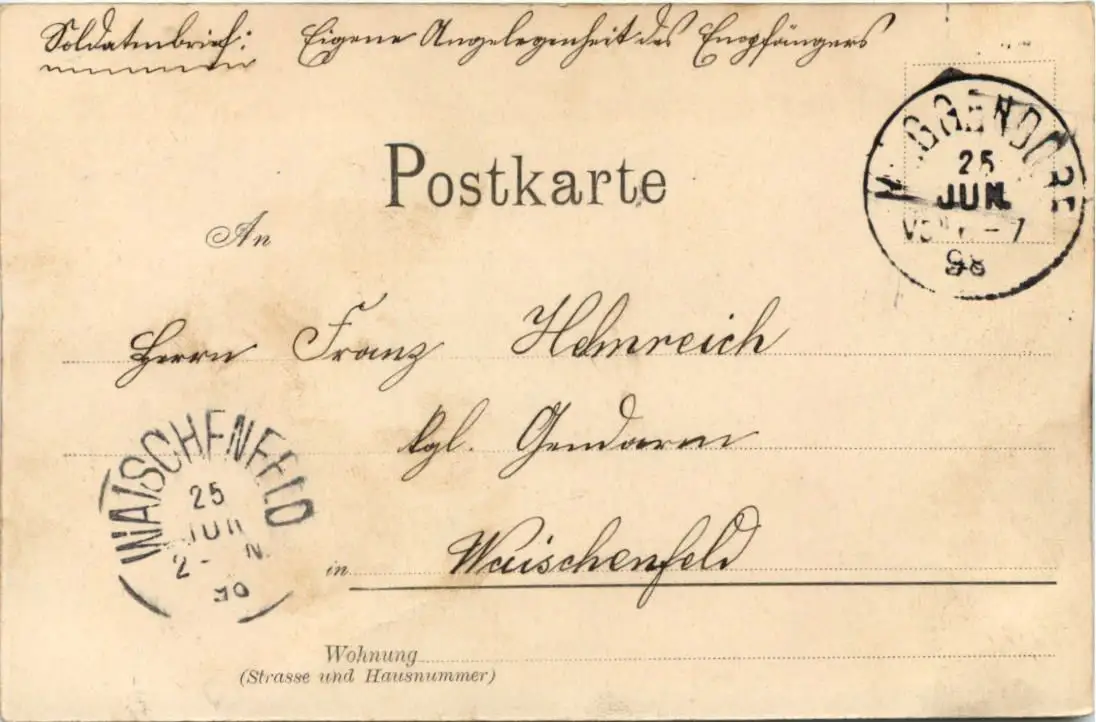 Soldatenbrief: Eigene Angelegenheit des Empfängers
Postkarte
25
JUN.
98
An
Herrn Franz Helmreich
kgl. Gendarm
WAISCHENFELD
25
JUN
2- N.
98
in Waischenfeld
Wohnung
(Strasse und Hausnummer)